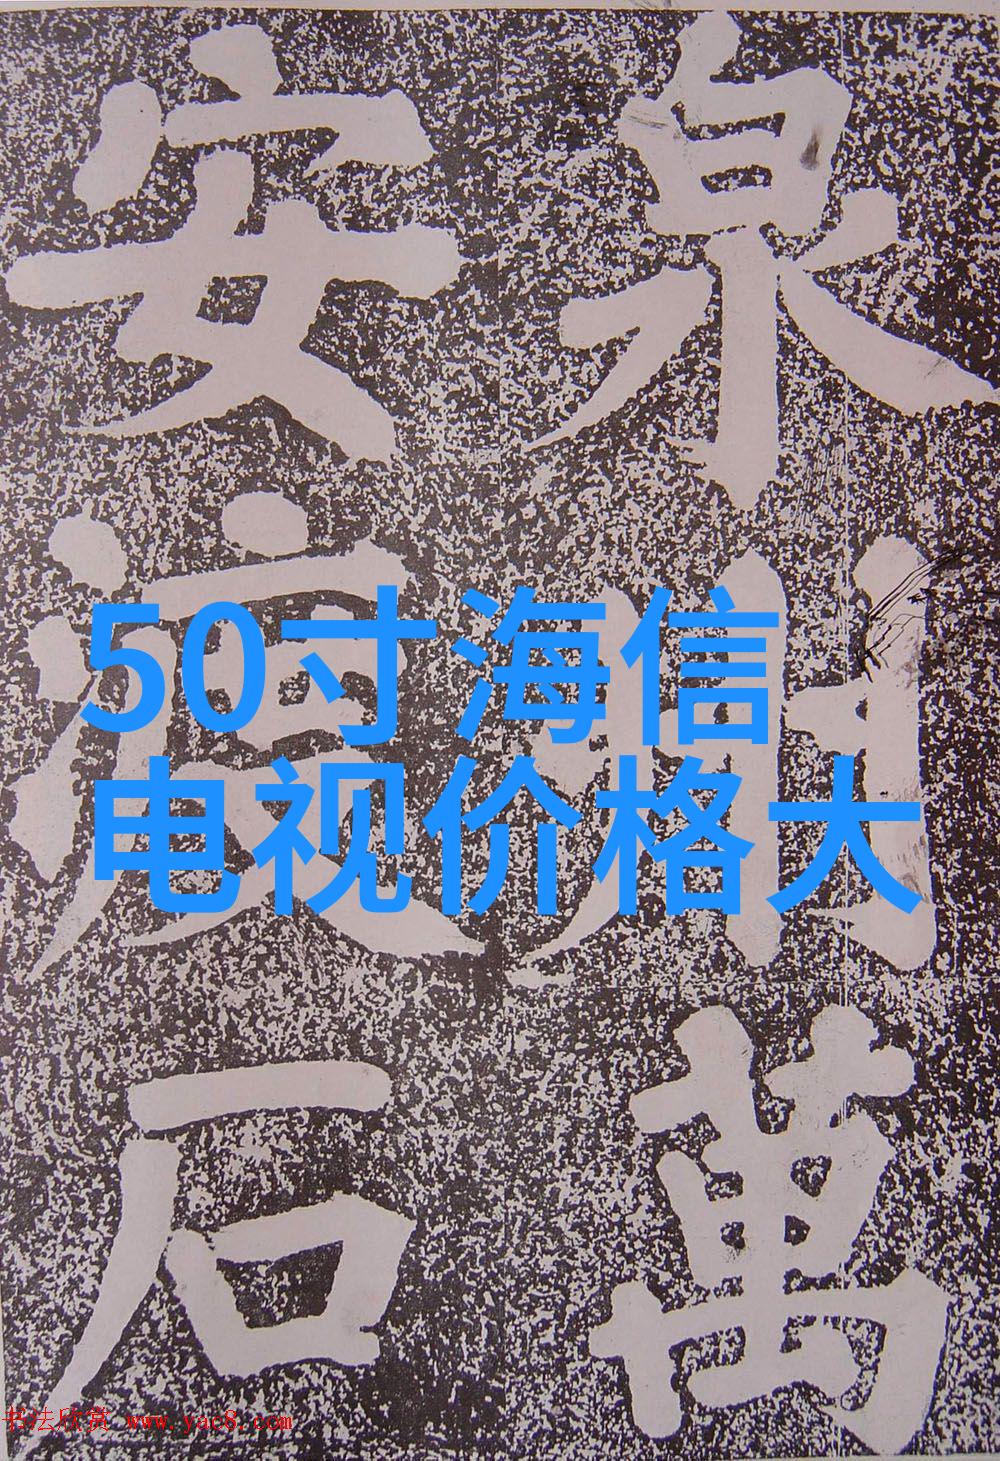 泉州萬
安渡石
50寸海信
电视价格大
书法欣赏 www.yac8.com